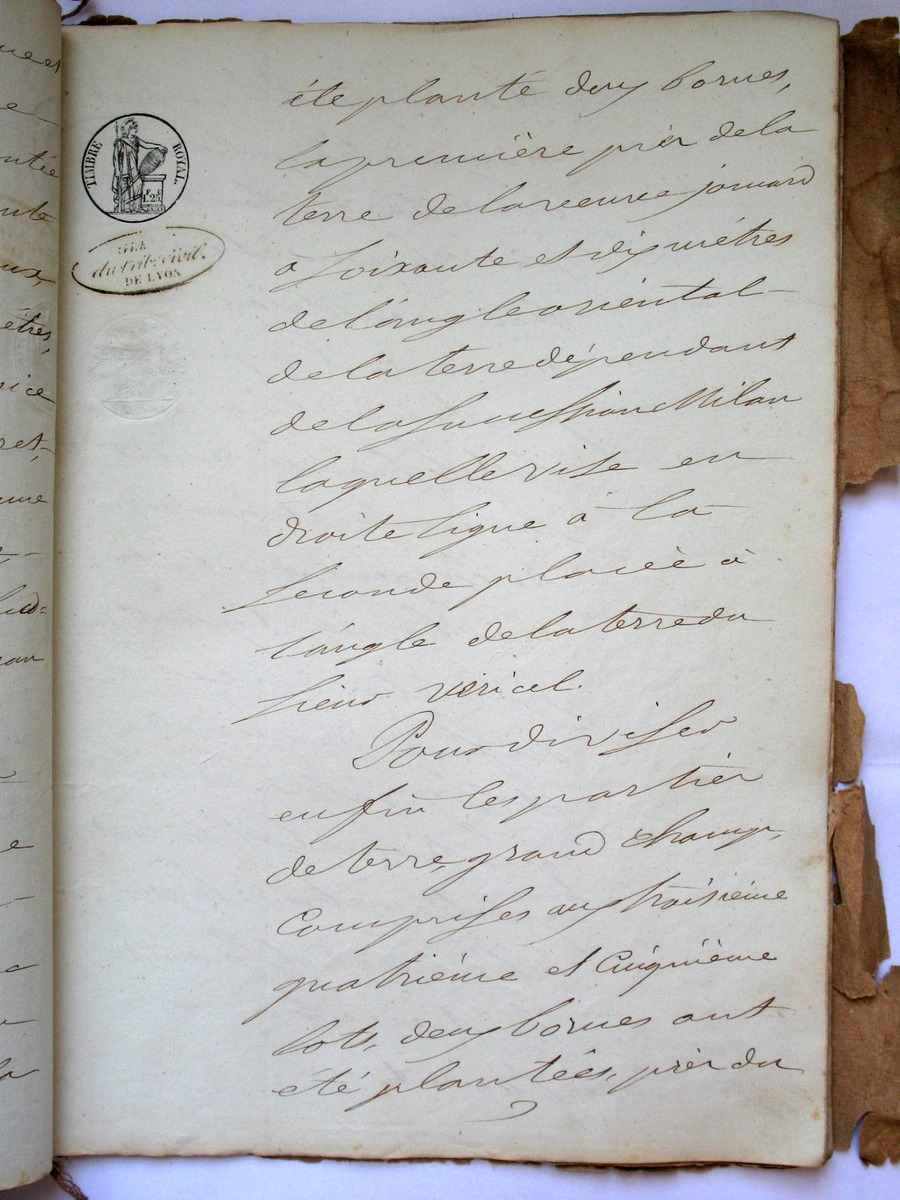 TIMBRE ROYAL.
1F 25
du trib. civil.
DE LYON
été planté deux bornes,
la première près de la
terre de la veuve jomard
a soixante et dix mètres
de l'angle oriental
de la terre dépendant
de la succession Milan
laquelle vise en
droite ligne à la
seconde placée à
l'angle de la terre du
sieur véricel.
Pour diviser
enfin les parties
de terre, grand champ,
comprises aux troisième
quatrième et cinquième
lots, deux bornes ont
été plantées, près du